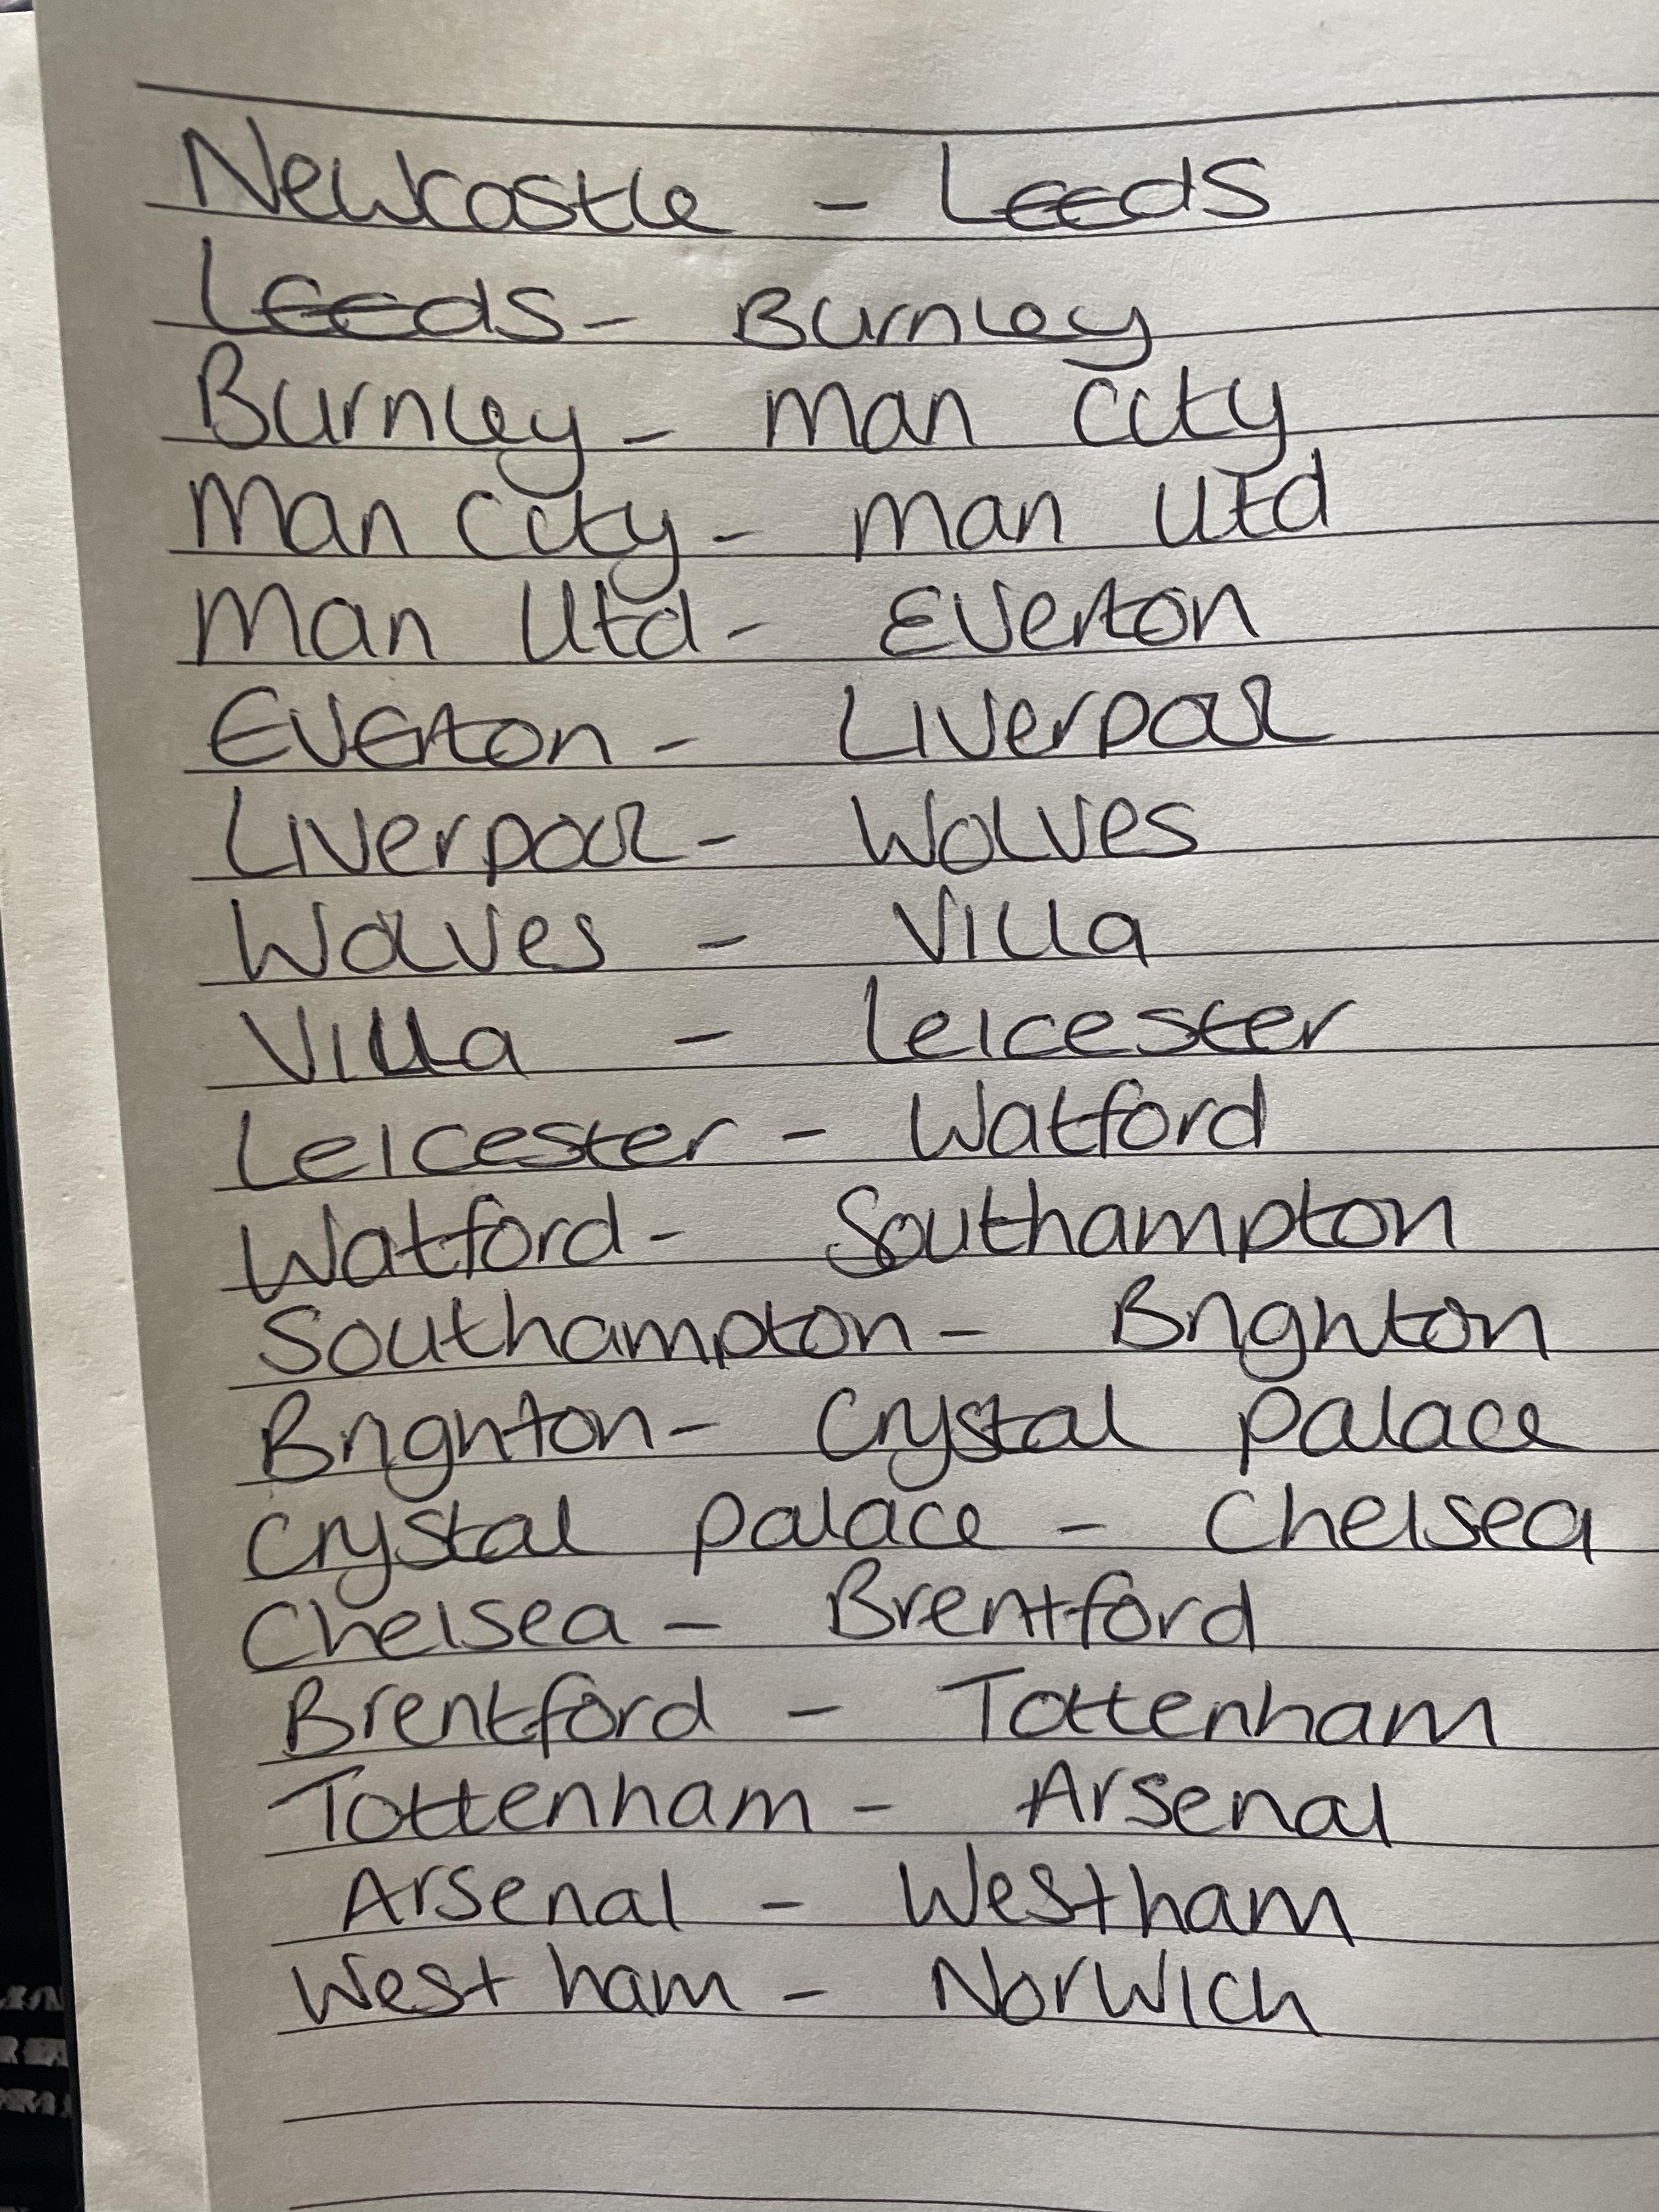 Newcastle - Leeds
Leeds - Burnley
Burnley - Man City
Man City - Man Utd
Man Utd - Everton
Everton - Liverpool
Liverpool - Wolves
Wolves - Villa
Villa - Leicester
Leicester - Watford
Watford - Southampton
Southampton - Brighton
Brighton - Crystal palace
Crystal palace - Chelsea
Chelsea - Brentford
Brentford - Tottenham
Tottenham - Arsenal
Arsenal - Westham
West ham - Norwich